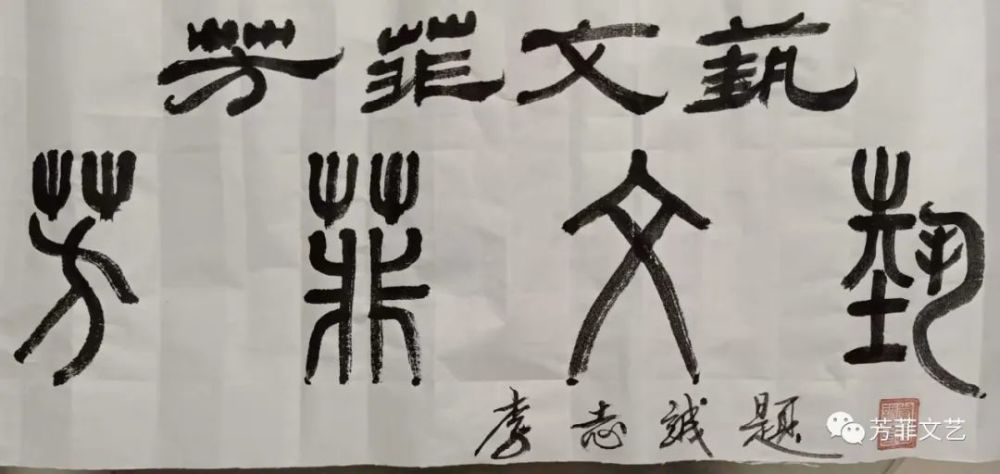 芳菲文藝
芳菲文藝
李志誠題
芳菲文艺